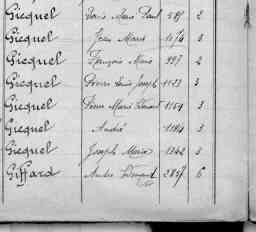 Gicquel Louis Marie Paul 587 2
Gicquel Jean Marie 1074 3
Gicquel François Marie 997 2
Gicquel Pierre Louis Joseph 1123 3
Gicquel Pierre Marie 1164 3
Gicquel André 1184 3
Gicquel Joseph Marie 1242 3
Giffard André 2857 6